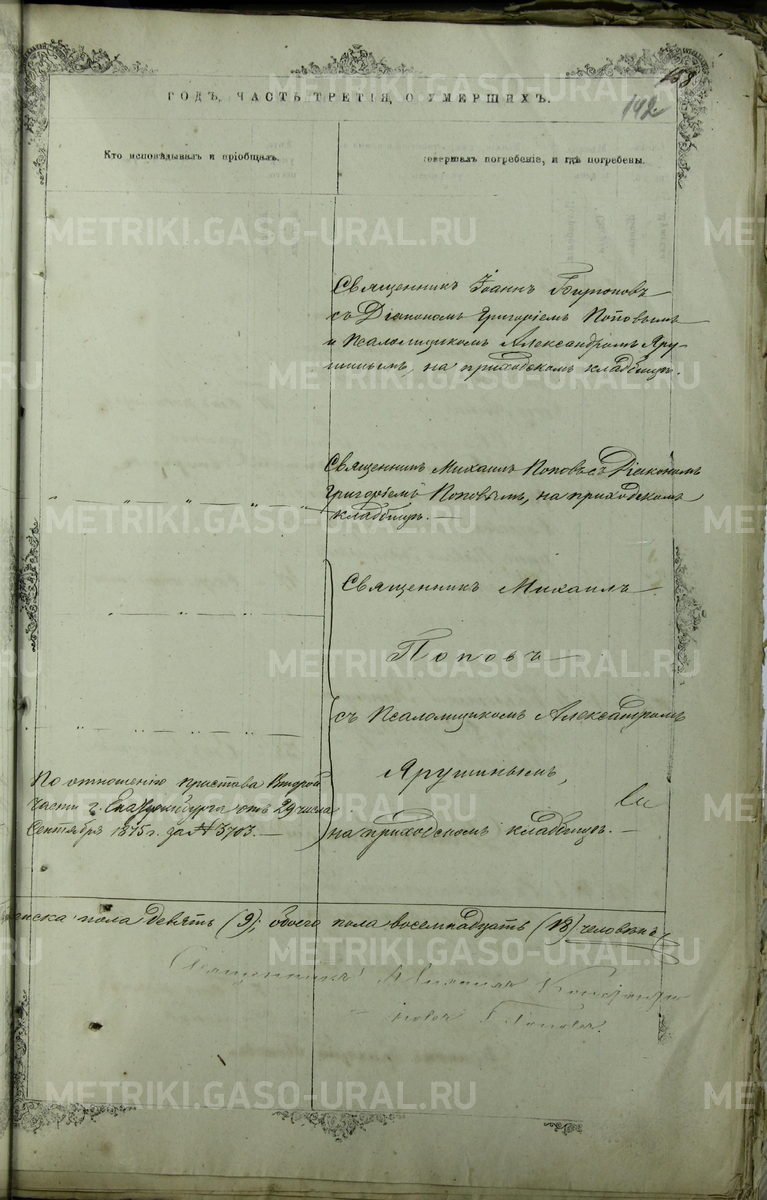 153
142
ГОДЪ, ЧАСТЬ ТРЕТІЯ, О УМЕРШИХЪ.
Кто исповѣдывалъ и пріобщалъ.
совершалъ погребеніе, и гдѣ погребены.
Священникъ Іоаннъ
съ Діакономъ Григоріемъ Поповымъ
и Псаломщикомъ Александромъ Яру-
шинымъ, на приходскомъ кладбищѣ.
Священникъ Михаилъ Поповъ съ Діакономъ
Григоріемъ Поповымъ, на приходскомъ
кладбищѣ. —
Священникъ Михаилъ
Поповъ
съ Псаломщикомъ Александромъ
Ярушинымъ,
на приходскомъ кладбищѣ. —
По отношенію пристава Второй
части г. Екатеринбурга отъ 29 числа
Сентября 1875 г. за № 3703. —
женска пола девять (9); обоего пола восемнадцать (18) человѣкъ
Священникъ Михаилъ
Поповъ.
METRIKI.GASO-URAL.RU